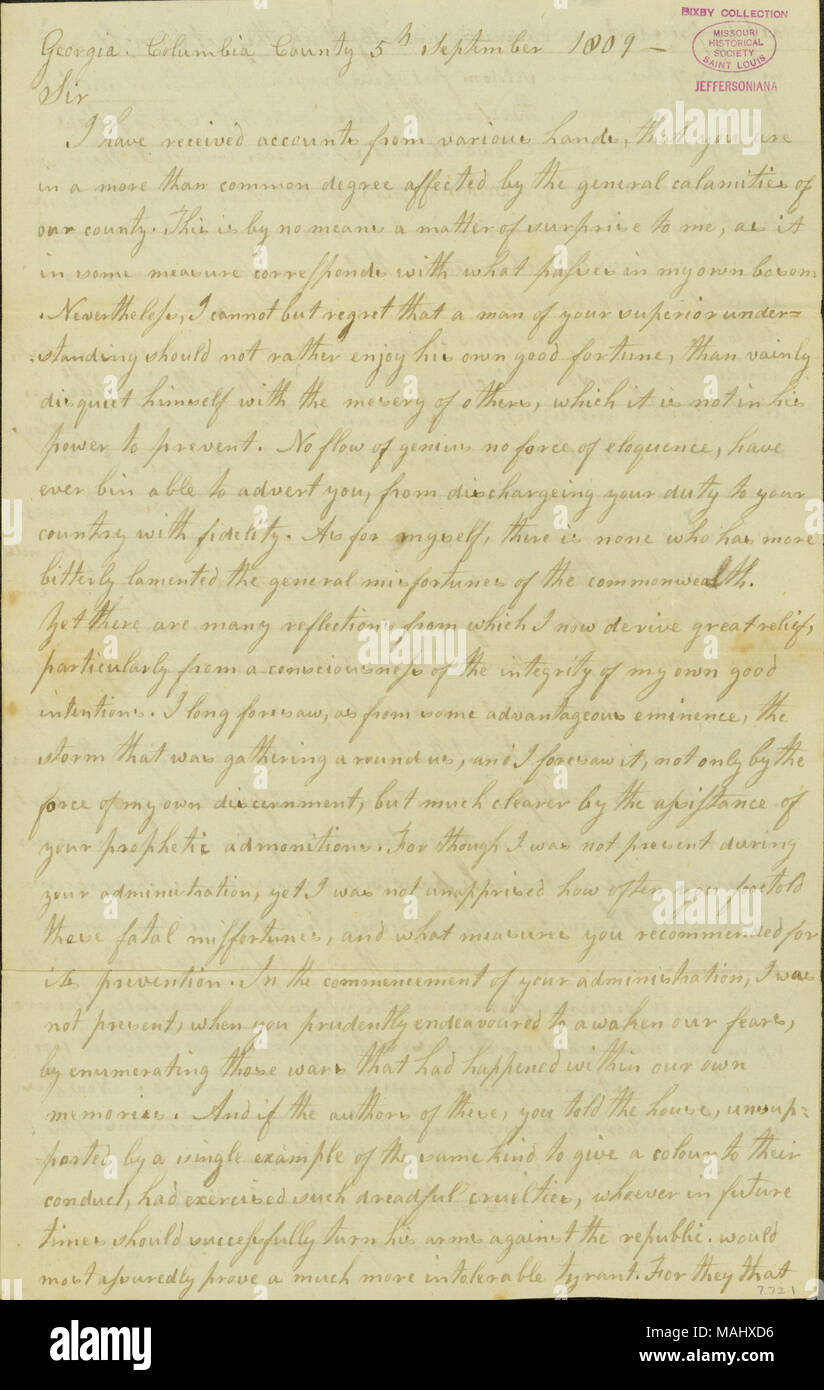 BIXBY COLLECTION
MISSOURI
HISTORICAL
SOCIETY
SAINT LOUIS
JEFFERSONIANA
Georgia. Columbia County 5th September 1809 —
Sir
I have received accounts from various hands, that you are
in a more than common degree affected by the general calamities of
our county. This is by no means a matter of surprise to me, as it
in some measure corresponds with what passes in my own bosom
. Nevertheless, I cannot but regret that a man of your superior under=
=standing should not rather enjoy his own good fortune, than vainly
disquiet himself with the mesery of others, which it is not in his
power to prevent. No flow of genius no force of eloquence, have
ever bin able to advert you, from dischargeing your duty to your
country with fidelity. As for myself, there is none who has more
bitterly lamented the general misfortunes of the commonwealth.
Yet there are many reflections from which I now derive great relief,
particularly from a consciousness of the integrity of my own good
intentions. I long foresaw, as from some advantageous eminence, the
storm that was gathering around us, and I foresaw it, not only by the
force of my own discernment, but much clearer by the assistance of
your prophetic admonitions. For though I was not present during
your administration, yet I was not unapprised how often you foretold
these fatal missfortunes, and what measures you recommended for
its prevention. In the commencement of your administration, I was
not present, when you prudently endeavoured to awaken our fears,
by enumerating those wars that had happened within our own
memories. And if the authors of these, you told the house, unsup=
-ported by a single example of the same kind to give a colour to their
conduct, had exercised such dreadful cruelties, whoever in future
times should successfully turn his arms against the republic. would
most assuredly prove a much more intolerable tyrant. For they that
7721
alamy
alamy
alamy
alamy
Image ID: MAHXD6
www.alamy.com